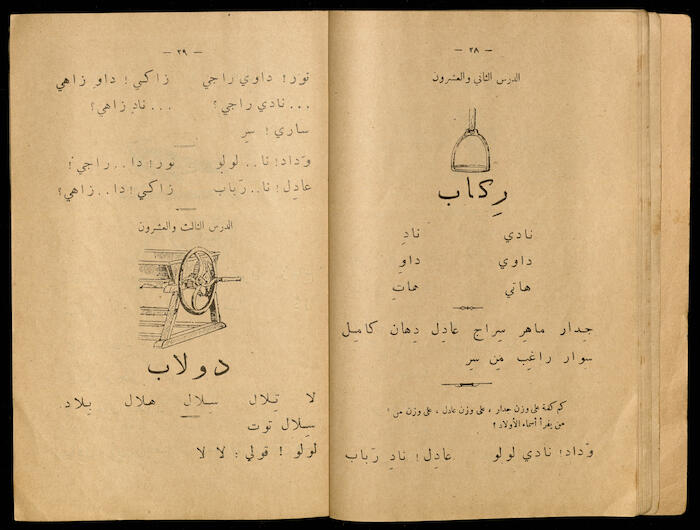 — ٢٨ —
الدرس الثاني والعشرون
رِكاب
نادي نادِ
داوي داوِ
هاتي هاتِ
جِدار ماهِر سِراج عادِل دِهان كامِل
سوار راغِب مَن سِر
كم كلمة على وزن جدار ، على وزن عادل ، على وزن من ؟
من يقرأ أسماء الأولاد ؟
وَداد! نادي لولو عادِل! نادِ رَباب
— ٢٩ —
نور! داوي راجي زاكي! داوِ زاهي
...نادي راجي؟ ...نادِ زاهي؟
ساري! سِر
وَداد! نا..لولو نور! دا..راجي!
عادِل! نا..رَباب زاكي! دا..زاهي؟
الدرس الثالث والعشرون
دولاب
لا تِلال سِلال هلال بِلاد.
سِلال توت
لولو ! قولي : لا لا